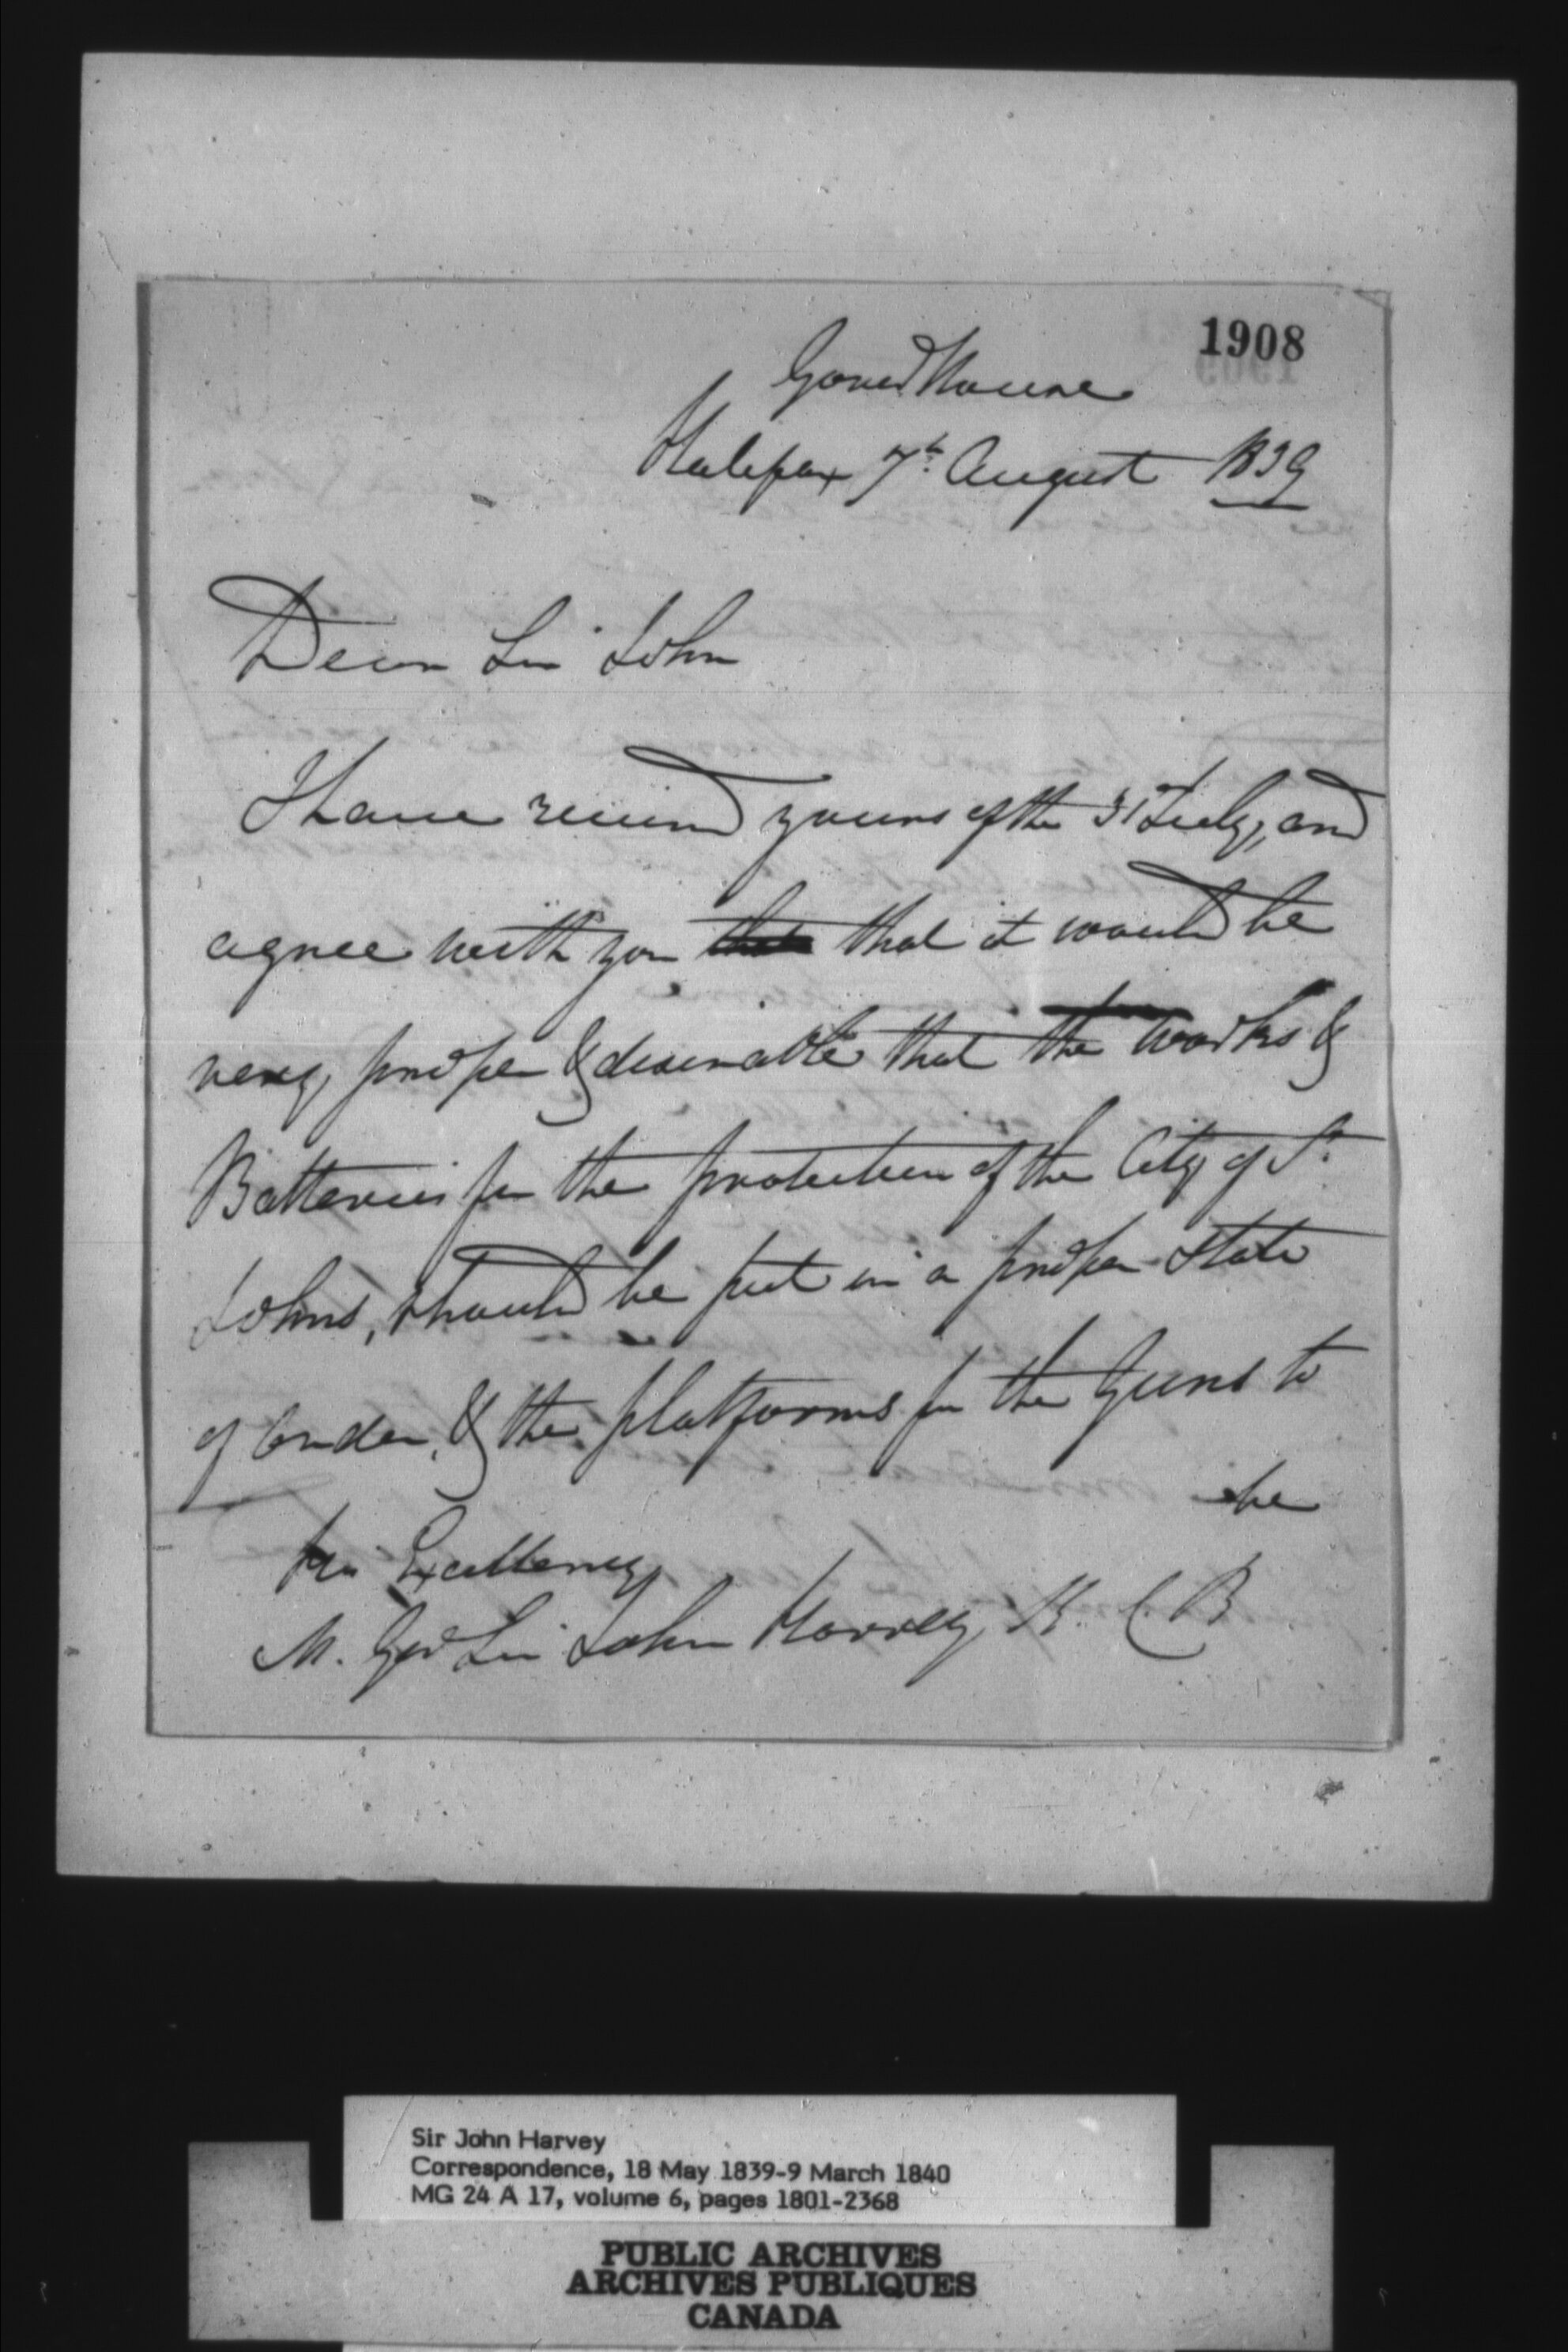 1908
Govert House
Halifax 7th August 1839
Dear Sir John
I have received yours of the 31 July, and
agree with you that that it would be
very proper & desirable that the works &
Batteries for the protection of the City of St.
Johns, should be put in a proper state
of order, & the platforms for the Guns to
be
His Excellency
M. Genl Sir John Harvey K. C B
Sir John Harvey
Correspondence, 18 May 1839-9 March 1840
MG 24 A 17, volume 6, pages 1801-2368
PUBLIC ARCHIVES
ARCHIVES PUBLIQUES
CANADA